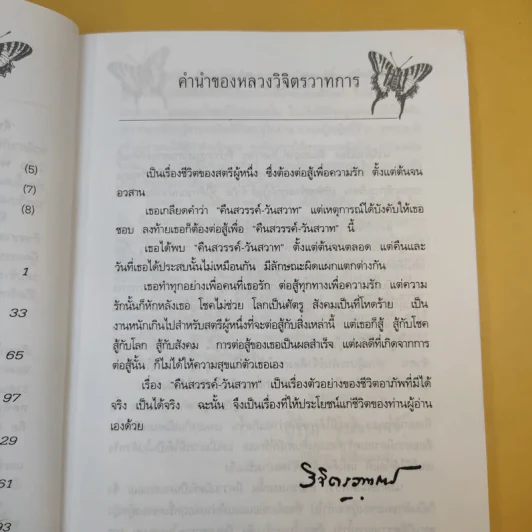 (5)
(7)
(8)
1
33
65
97
29
61
93
คำนำของหลวงวิจิตรวาทการ
เป็นเรื่องชีวิตของสตรีผู้หนึ่ง ซึ่งต้องต่อสู้เพื่อความรัก ตั้งแต่ต้นจน
อวสาน
เธอเกลียดคำว่า "คืนสวรรค์-วันสวาท" แต่เหตุการณ์ได้บังคับให้เธอ
ชอบ ลงท้ายเธอก็ต้องต่อสู้เพื่อ "คืนสวรรค์-วันสวาท" นี้
เธอได้พบ "คืนสวรรค์-วันสวาท" ตั้งแต่ต้นจนตลอด แต่คืนและ
วันที่เธอได้ประสบนั้นไม่เหมือนกัน มีลักษณะผิดแผกแตกต่างกัน
เธอทำทุกอย่างเพื่อคนที่เธอรัก ต่อสู้ทุกทางเพื่อความรัก แต่ความ
รักนั้นก็หักหลังเธอ โชคไม่ช่วย โลกเป็นศัตรู สังคมเป็นที่โหดร้าย เป็น
งานหนักเกินไปสำหรับสตรีผู้หนึ่งที่จะต่อสู้กับสิ่งเหล่านี้ แต่เธอก็สู้ สู้กับโชค
สู้กับโลก สู้กับสังคม การต่อสู้ของเธอเป็นผลสำเร็จ แต่ผลดีที่เกิดจากการ
ต่อสู้นั้น ก็ไม่ได้ให้ความสุขแก่ตัวเธอเอง
เรื่อง "คืนสวรรค์-วันสวาท" เป็นเรื่องตัวอย่างของชีวิตอาภัพที่มีได้
จริง เป็นได้จริง ฉะนั้น จึงเป็นเรื่องที่ให้ประโยชน์แก่ชีวิตของท่านผู้อ่าน
เองด้วย
วิจิตรวาทการ